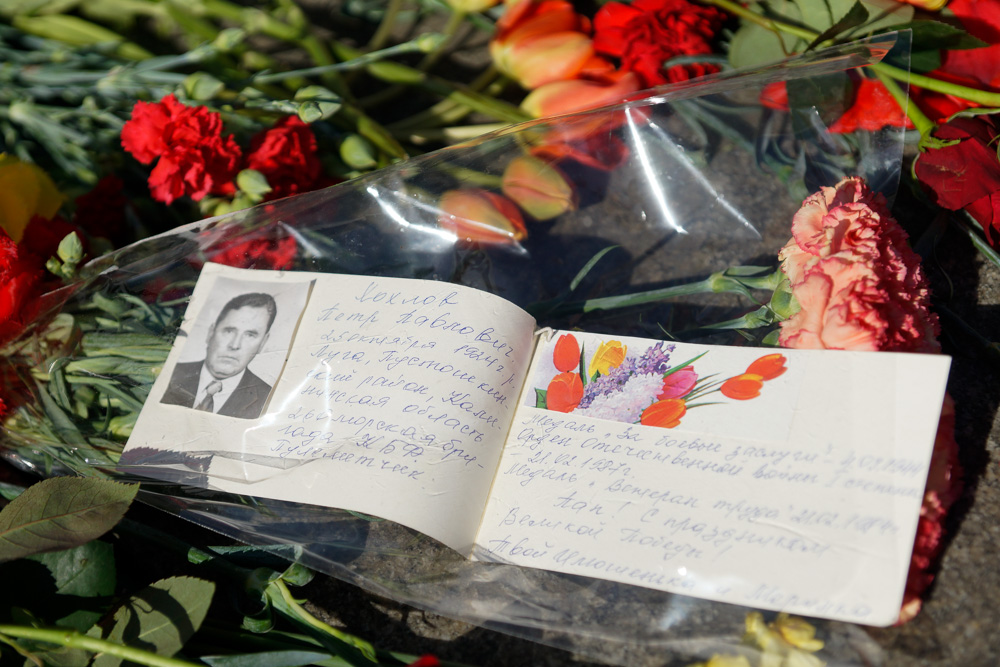 Хохлов
Петр Павлович
25 октября 1924 г.
Луга, Пустошкин.
ский район, Кали-
нинская область
2я Морская бри-
гада КБФ
Пулеметчик.
Медаль "За боевые заслуги"
Орден Отечественной войны I степени
21.02.1987г.
Медаль "Ветеран труда"
Пап! С праздником
Великой Победы!
Твой Имошенька и Маришка